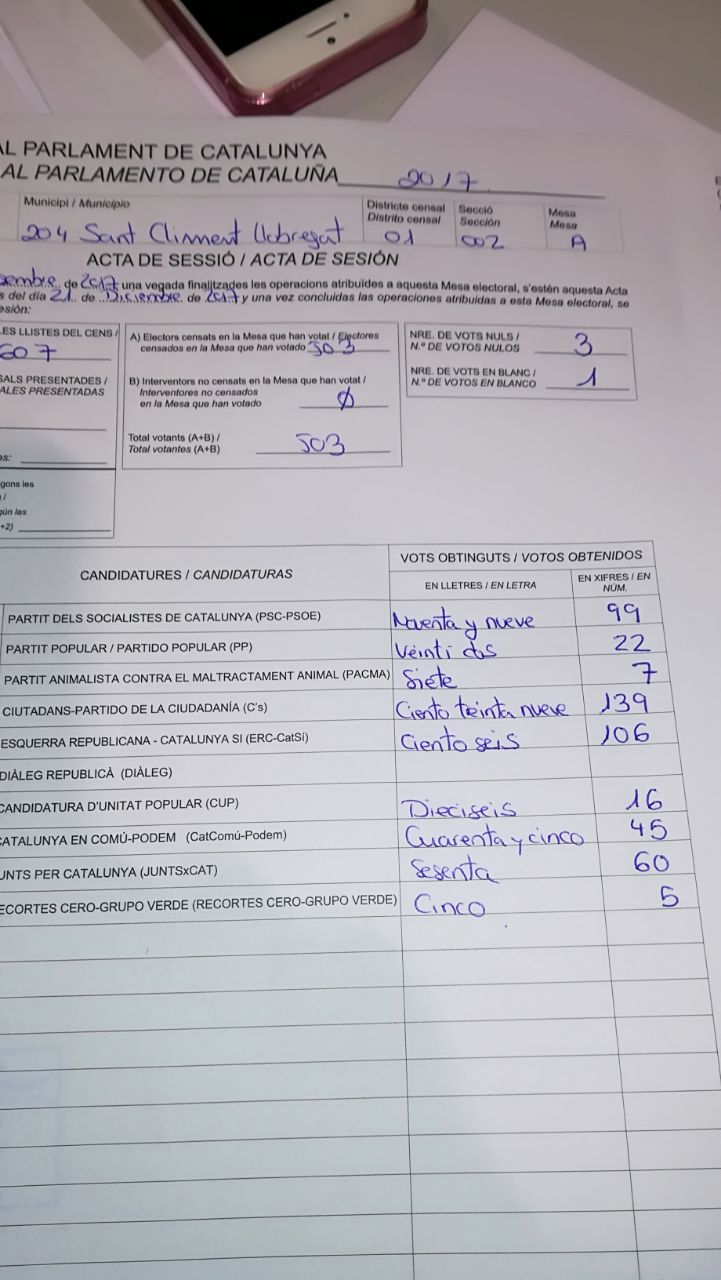 AL PARLAMENT DE CATALUNYA
AL PARLAMENTO DE CATALUÑA 2017
Municipi / Municipio
204 Sant Climent Llobregat
Districte censal
Distrito censal
01
Secció
Sección
002
Mesa
Mesa
A
ACTA DE SESSIÓ / ACTA DE SESIÓN
de 2017, una vegada finalitzades les operacions atribuïdes a aquesta Mesa electoral, s'estén aquesta Acta
s del día 21 de Diciembre de 2017 y una vez concluidas las operaciones atribuidas a esta Mesa electoral, se
esión:
ES LLISTES DEL CENS /
607
SALS PRESENTADES /
ALES PRESENTADAS
os:
gons les
n /
gún las
+2)
A) Electors censats en la Mesa que han votat / Electores
censados en la Mesa que han votado 503
B) Interventors no censats en la Mesa que han votat /
Interventores no censados
en la Mesa que han votado Ø
Total votants (A+B) /
Total votantes (A+B) 503
NRE. DE VOTS NULS /
N.º DE VOTOS NULOS 3
NRE. DE VOTS EN BLANC /
N.º DE VOTOS EN BLANCO 1
CANDIDATURES / CANDIDATURAS
VOTS OBTINGUTS / VOTOS OBTENIDOS
EN LLETRES / EN LETRA
EN XIFRES / EN
NÚM.
PARTIT DELS SOCIALISTES DE CATALUNYA (PSC-PSOE) Noventa y nueve 99
PARTIT POPULAR / PARTIDO POPULAR (PP) Veinti dos 22
PARTIT ANIMALISTA CONTRA EL MALTRACTAMENT ANIMAL (PACMA) Siete 7
CIUTADANS-PARTIDO DE LA CIUDADANÍA (C's) Ciento treinta nueve 139
ESQUERRA REPUBLICANA - CATALUNYA SI (ERC-CatSí) Ciento seis 106
DIÀLEG REPUBLICÀ (DIÀLEG)
CANDIDATURA D'UNITAT POPULAR (CUP) Dieciseis 16
CATALUNYA EN COMÚ-PODEM (CatComú-Podem) Cuarenta y cinco 45
UNTS PER CATALUNYA (JUNTSxCAT) Sesenta 60
ECORTES CERO-GRUPO VERDE (RECORTES CERO-GRUPO VERDE) Cinco 5